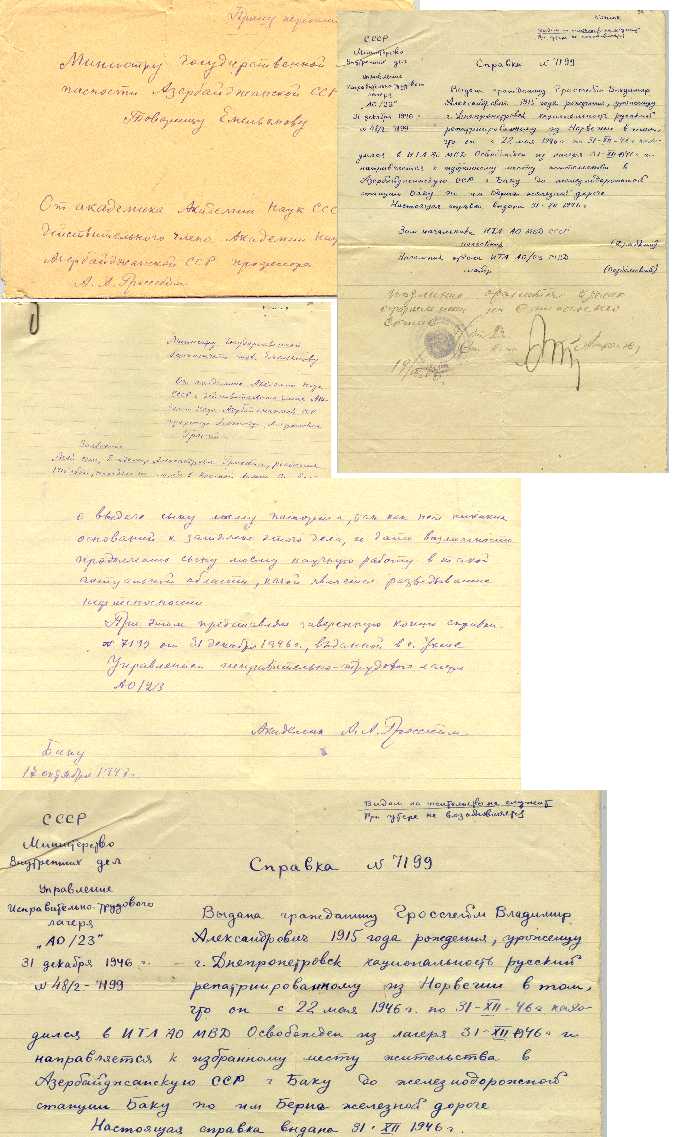 Прошу
Министру Государственной
Азербайджанской ССР
Товарищу Емельянову
От академика Академии Наук СССР
действительного члена Академии Наук
Азербайджанской ССР профессора
А. А. Гроссгейм
Копия
Видом на жительство не служит
При утере не возобновляется
СССР
Министерство
Внутренних дел
Управление
Исправительно-трудового
лагеря
"АО/23"
31 декабря 1946 г.
№ 48/2-7199
Справка № 7199
Выдана гражданину Гроссгейм Владимир
Александрович 1915 года рождения, уроженцу
г. Днепропетровск национальность русский
репатриированному из Норвегии в том,
что он с 22 мая 1946 г. по 31-XII-46 г. нахо-
дился в ИТЛ АО МВД Освобожден из лагеря 31-XII 1946 г. и
направляется к избранному месту жительства в
Азербайджанскую ССР г Баку до железнодорожной
станции Баку по им Берия железной дороге
Настоящая справка выдана 31-XII 1946 г.
Зам начальника ИТЛ АО МВД СССР
ИТЛ АО/23 МВД
майор
19
Министру Государственной
тов. Емельянову
От академика Академии Наук
СССР и действительного члена Ака-
демии Наук Азербайджанской ССР
профессора Александра Альфонсовича
Гроссгейм
Заявление
Мой сын, Владимир Александрович Гроссгейм, рождения
1915 года,
о выдаче сыну моему паспорта, так как нет никаких
оснований к задержке этого дела, и дать возможность
продолжать сыну моему научную работу в такой
актуальной области, какой является разведывание
нефтеносности
При этом представляю заверенную копию справки
№ 7199 от 31 декабря 1946 г., выданной в г.
Управлением исправительно-трудового лагеря
АО/23
Академик А. А. Гроссгейм
Баку
17 октября 1947 г.
СССР
Министерство
Внутренних дел
Управление
Исправительно-трудового
лагеря
"АО/23"
31 декабря 1946 г.
№ 48/2-7199
Видом на жительство не служит
При утере не возобновляется
Справка № 7199
Выдана гражданину Гроссгейм Владимир
Александрович 1915 года рождения, уроженцу
г. Днепропетровск национальность русский
репатриированному из Норвегии в том,
что он с 22 мая 1946 г. по 31-XII-46 г нахо-
дился в ИТЛ АО МВД Освобожден из лагеря 31-XII 1946 г. и
направляется к избранному месту жительства в
Азербайджанскую ССР г Баку до железнодорожной
станции Баку по им Берия железной дороге
Настоящая справка выдана 31-XII 1946 г.